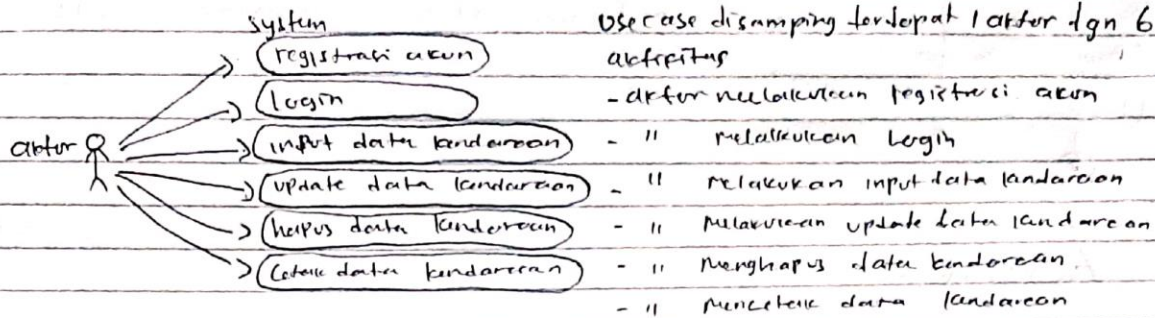 system
registrasi akun
login
aktor
input data kendaraan
update data kendaraan
hapus data kendaraan
Cetak data kendaraan
Use case disamping terdapat 1 aktor dgn 6
aktifitas
- aktor melakukan registrasi akun
- " melakukan Login
- " melakukan input data kendaraan
- " melakukan update data kendaraan
- " Menghapus data kendaraan
- " Mencetak data kendaraan